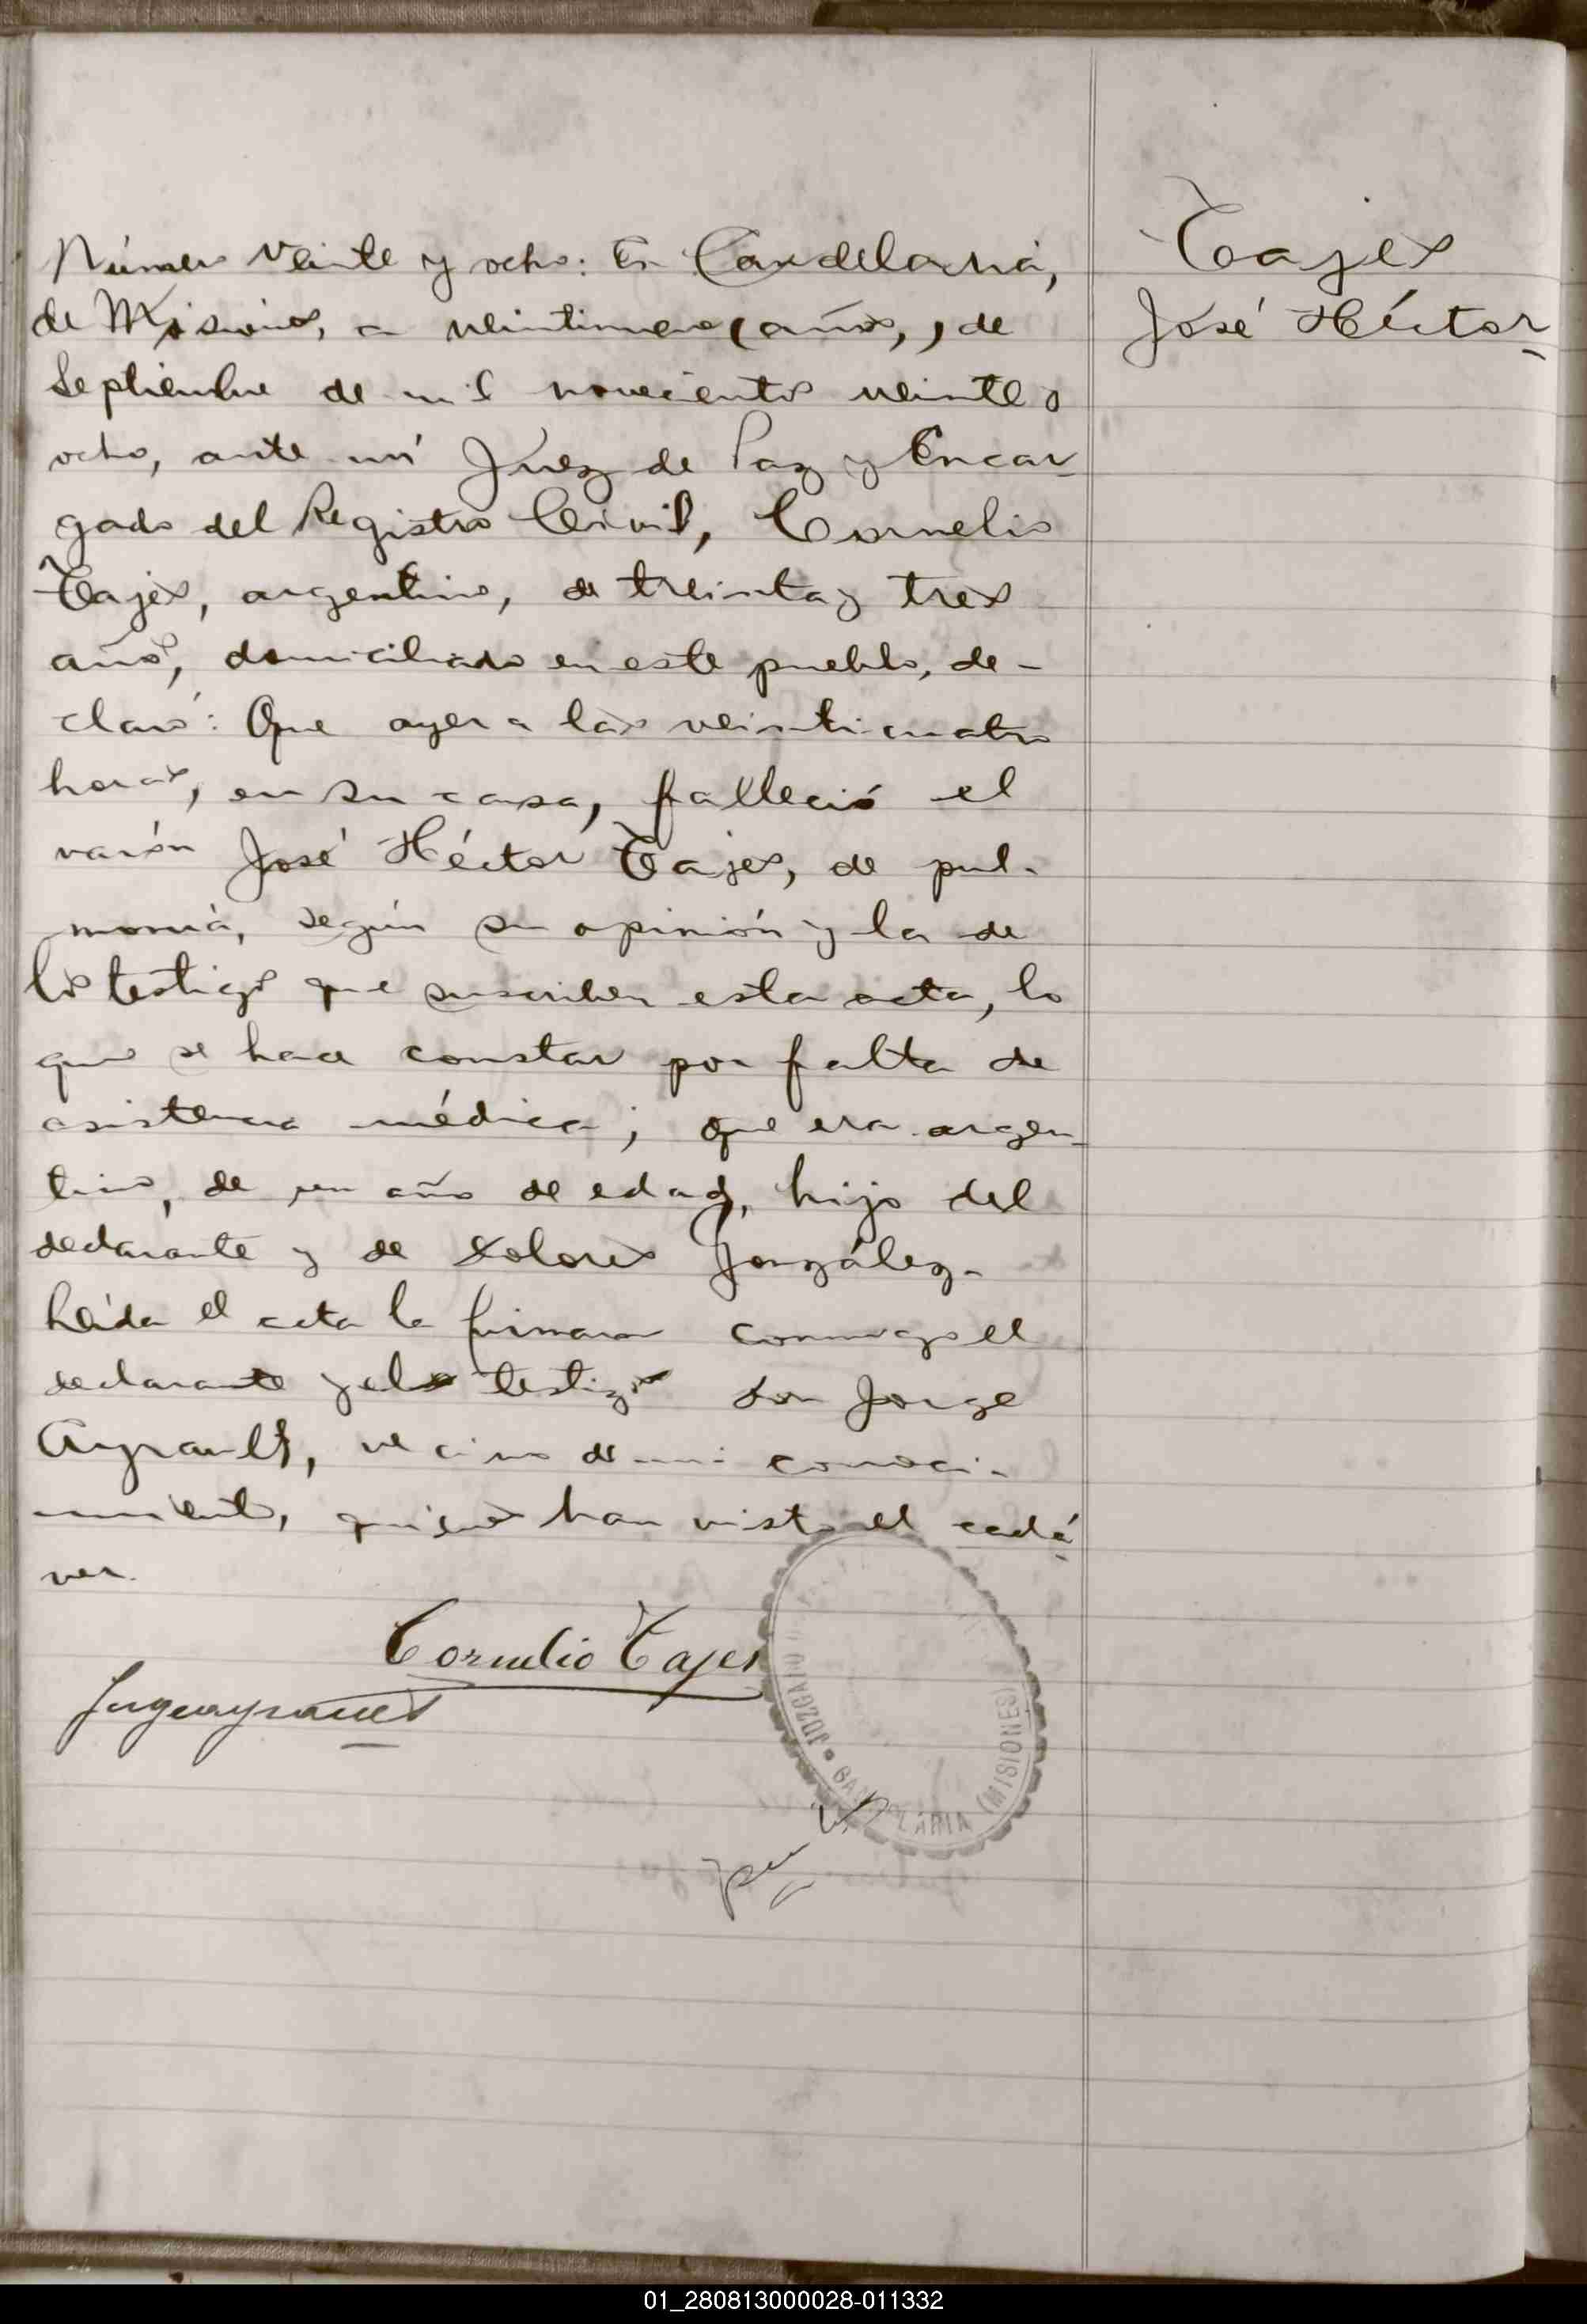 Tajes
José Héctor
Número veinte y ocho: En Candelaria,
de Misiones, a veintinueve (años,) de
Septiembre de mil novecientos veinte y
ocho, ante mí Juez de Paz y Encar-
gado del Registro Civil, Cornelio
Tajes, argentino, de treinta y tres
años, domiciliado en este pueblo, de-
claró: Que ayer a las veinticuatro
horas, en su casa, falleció el
varón José Héctor Tajes, de pul-
monía, según su opinión y la de
los testigos que suscriben esta acta, lo
que se hace constar por falta de
asistencia médica; que era argen-
tino, de un año de edad, hijo del
declarante y de Dolores González.-
Leída el acta la firmaron conmigo el
declarante y el testigo don Jorge
Ayrault, vecino de mi conoci-
miento, quienes han visto el cadá-
ver.
Cornelio Tajes
JUZGADO
CANDELARIA (MISIONES)
01_280813000028-011332